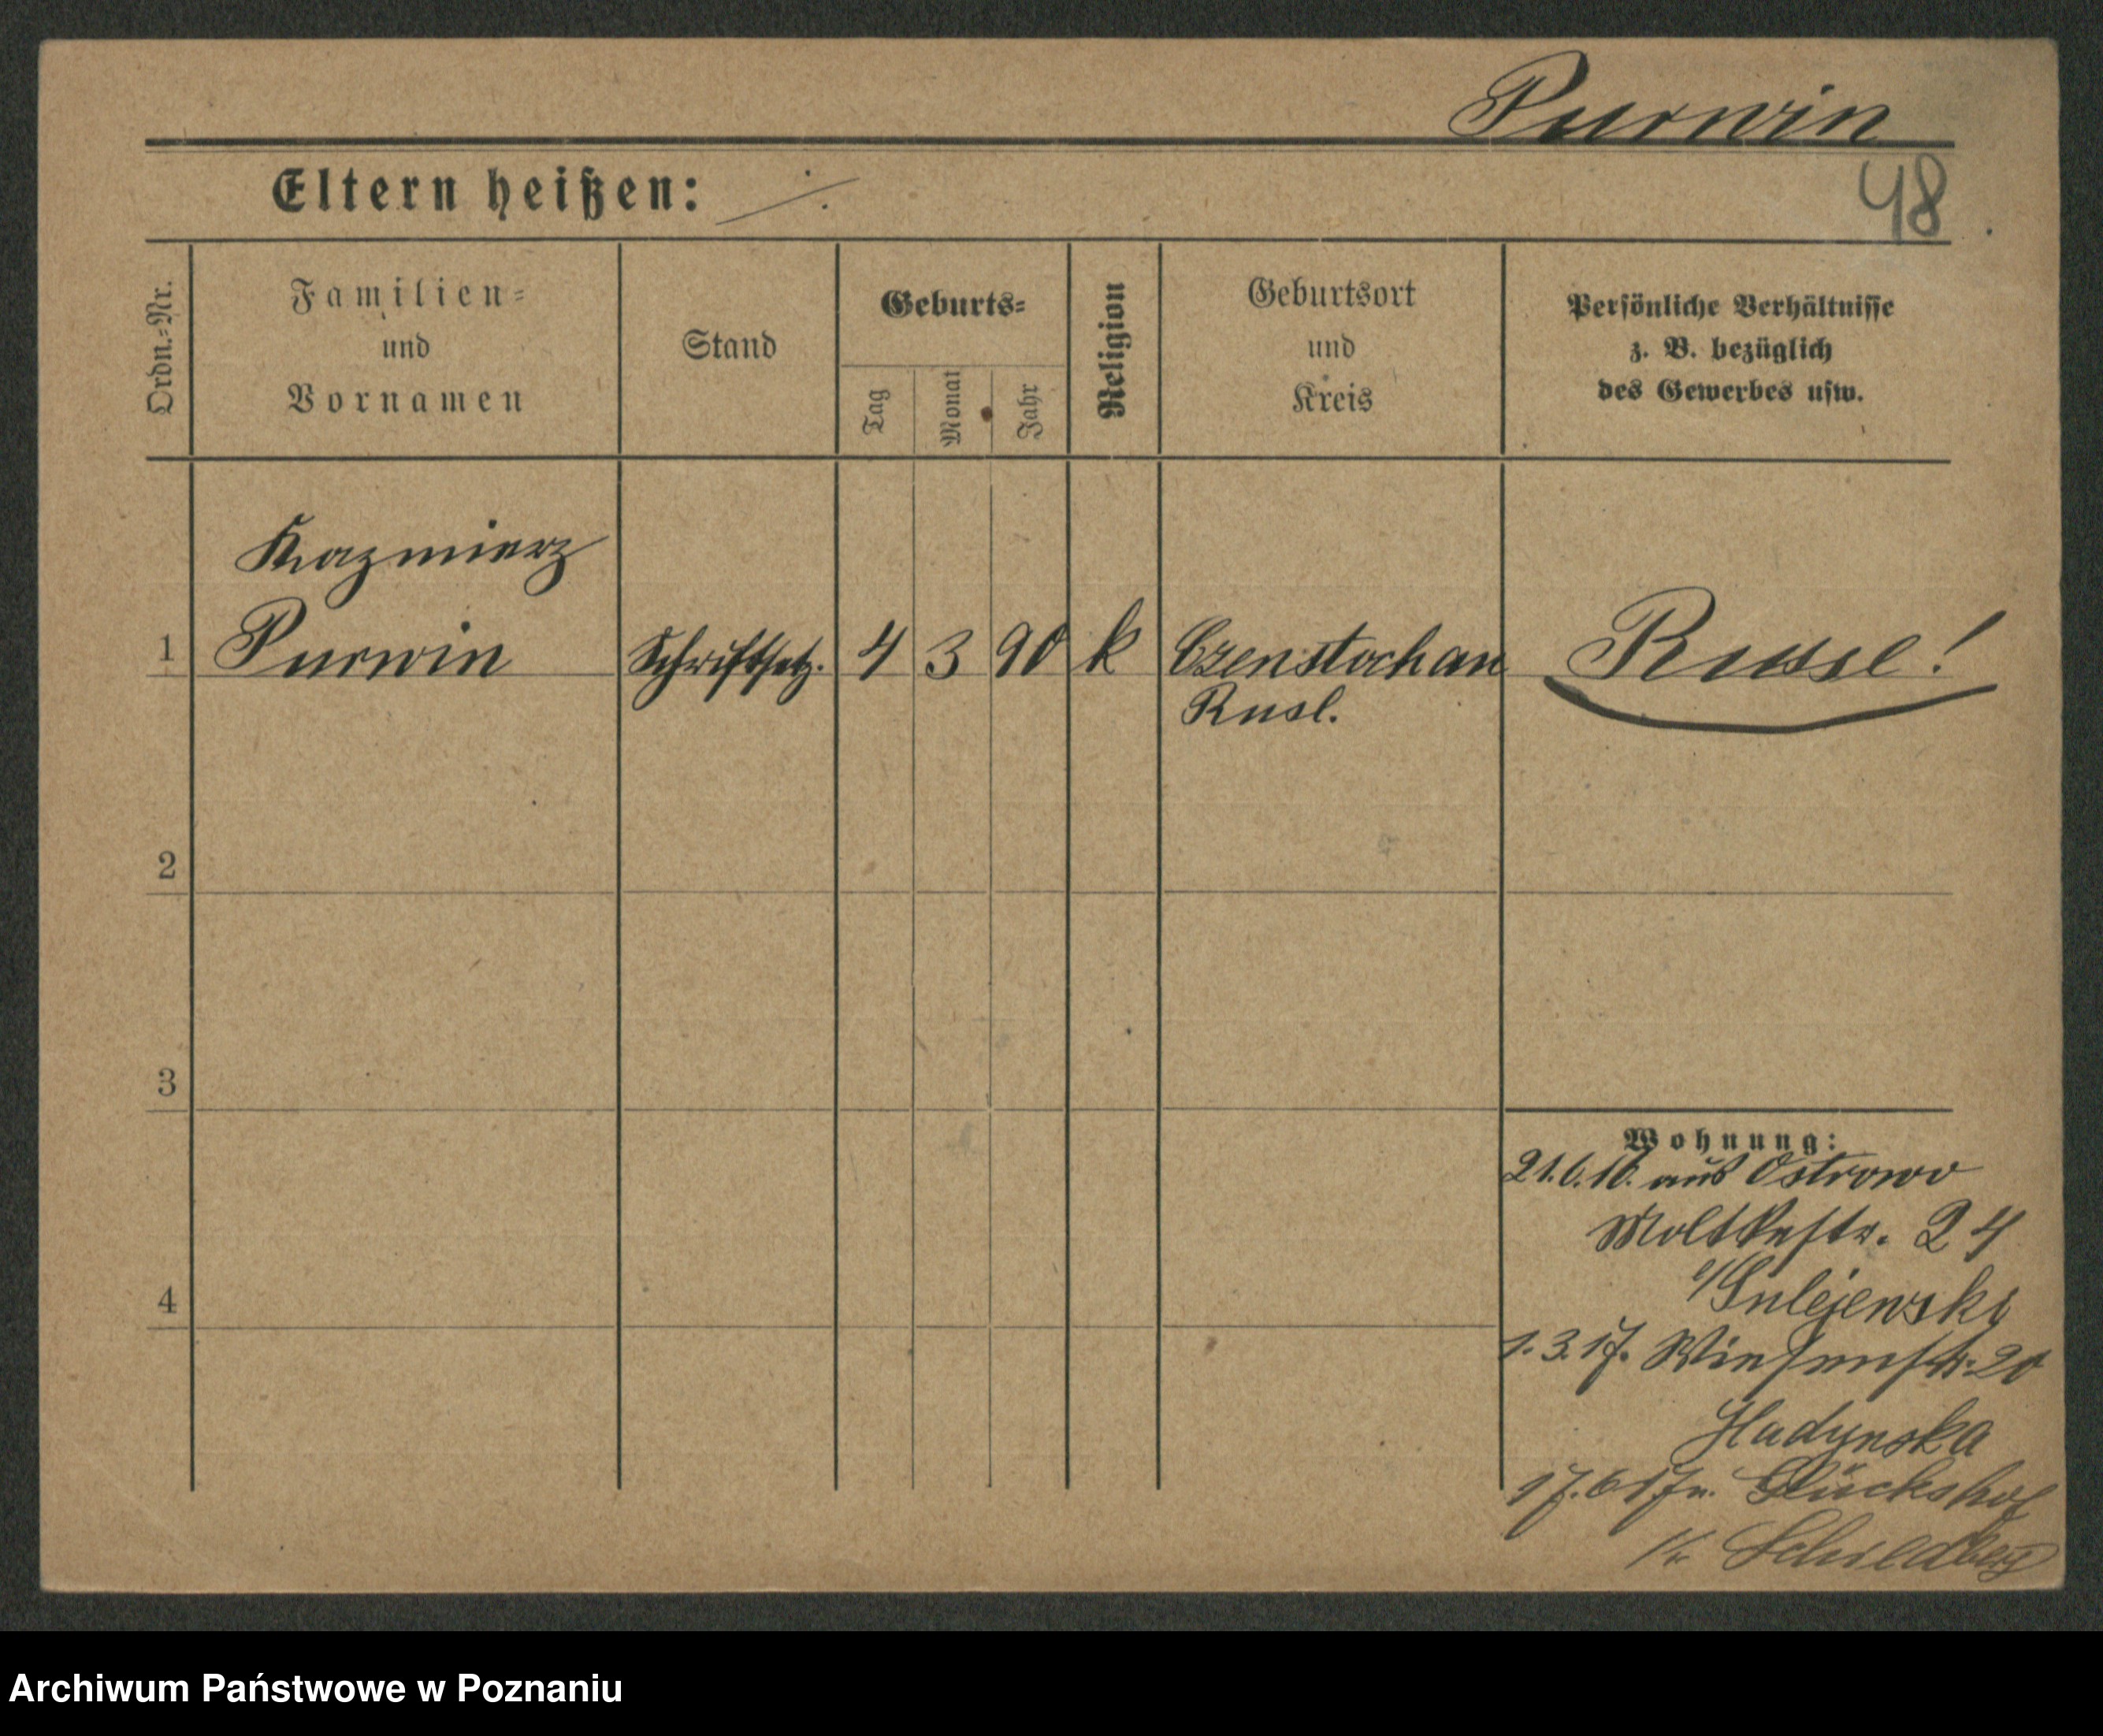 Purwin
Eltern heißen: ·/.
48
Ordn.-Nr.
Familien-
und
Vornamen
Stand
Geburts-
Tag
Monat
Jahr
Religion
Geburtsort
und
Kreis
Persönliche Verhältnisse
z. B. bezüglich
des Gewerbes usw.
Kazmierz
1 Purwin Schriftsetz. 4 3 90 k Czenstochau Russe!
Rusl.
2
3
4
Wohnung:
21.6.16. aus Ostrowo
Moltkestr. 24
Sulejewski
1.3.17. Wiesenstr. 20
Hadynska
17.6.17 n. Glückshof
Kr Schildberg
Archiwum Państwowe w Poznaniu